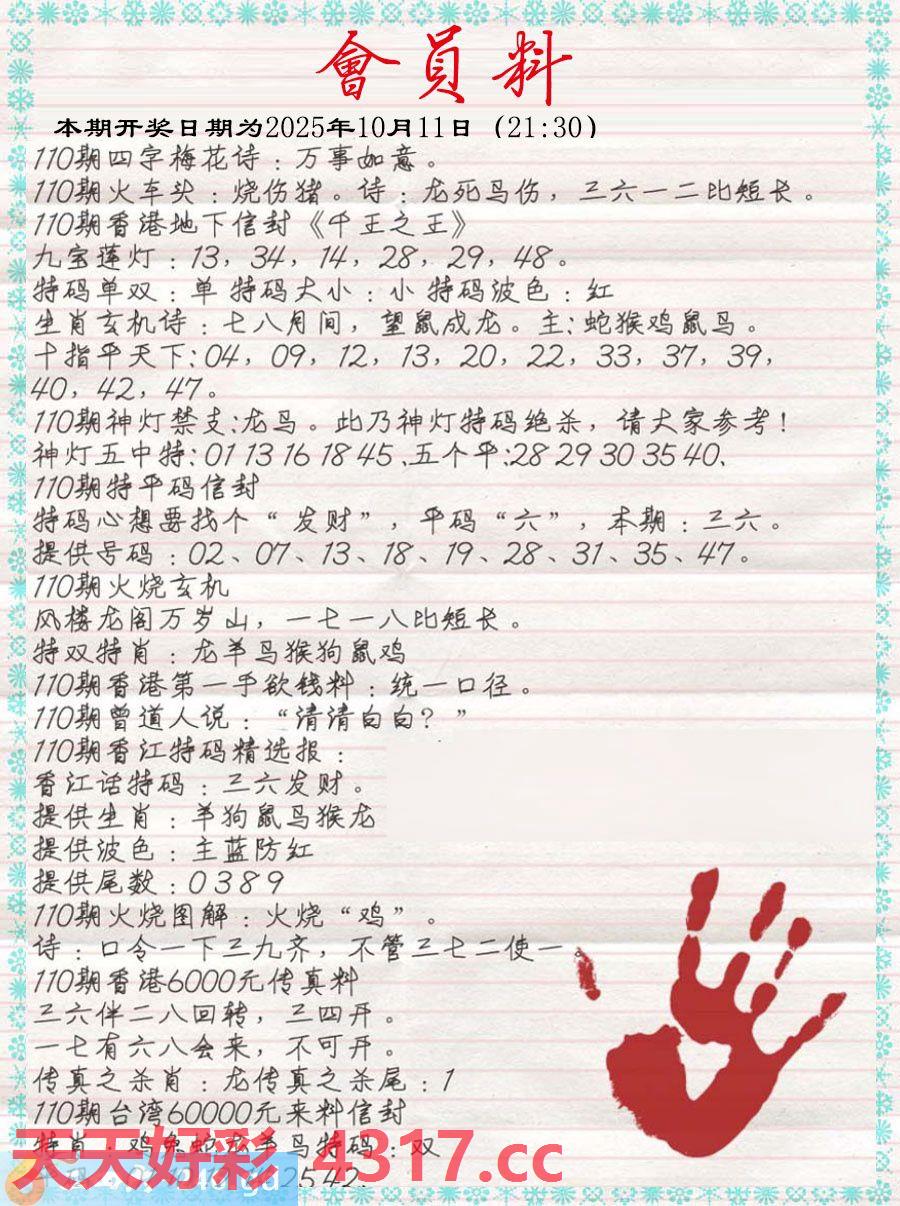 會員料
本期开奖日期为2025年10月11日（21:30）
110期四字梅花诗：万事如意。
110期火车头：烧伤猪。诗：龙死马伤，三六一二比短长。
110期香港地下信封《千王之王》
九宝莲灯：13，34，14，28，29，48。
特码单双：单 特码大小：小 特码波色：红
生肖玄机诗：七八月间，望鼠成龙。主:蛇猴鸡鼠马。
十指平天下:04，09，12，13，20，22，33，37，39，
40，42，47。
110期神灯禁支:龙马。此乃神灯特码绝杀，请大家参考！
神灯五中特:01 13 16 18 45、五个平:28 29 30 35 40、
110期特平码信封
特码心想要找个“发财”，平码“六”，本期：三六。
提供号码：02、07、13、18、19、28、31、35、47。
110期火烧玄机
风楼龙阁万岁山，一七一八比短长。
特双特肖：龙羊马猴狗鼠鸡
110期香港第一手欲钱料：统一口径。
110期曾道人说：“清清白白？”
110期香江特码精选报：
香江话特码：三六发财。
提供生肖：羊狗鼠马猴龙
提供波色：主蓝防红
提供尾数：0 3 8 9
110期火烧图解：火烧“鸡”。
诗：口令一下三九齐，不管三七二使一。
110期香港6000元传真料
三六伴二八回转，三四开。
一七有六八会来，不可开。
传真之杀肖：龙传真之杀尾：1
110期台湾60000元来料信封
特肖：鸡兔蛇龙羊马特码：双
天天好彩 4317.cc